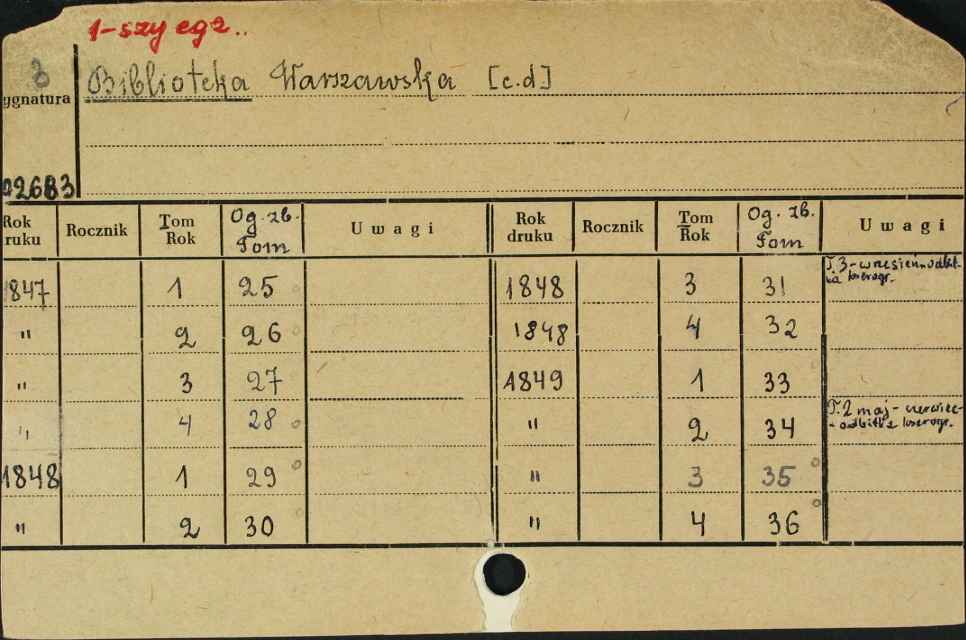 1-szy egz..
3
Biblioteka Warszawska [c.d]
ygnatura
02683
Rok ruku Rocznik Tom Rok Og. zb. Tom Uwagi Rok druku Rocznik Tom Rok Og. zb. Tom Uwagi
1847 1 25 1848 3 31 T.3 - wrzesień odbitka kserogr.
" 2 26 1848 4 32
" 3 27 1849 1 33
" 4 28 " 2 34 T.2 maj - czerwiec - odbitka kserogr.
1848 1 29 " 3 35
" 2 30 " 4 36